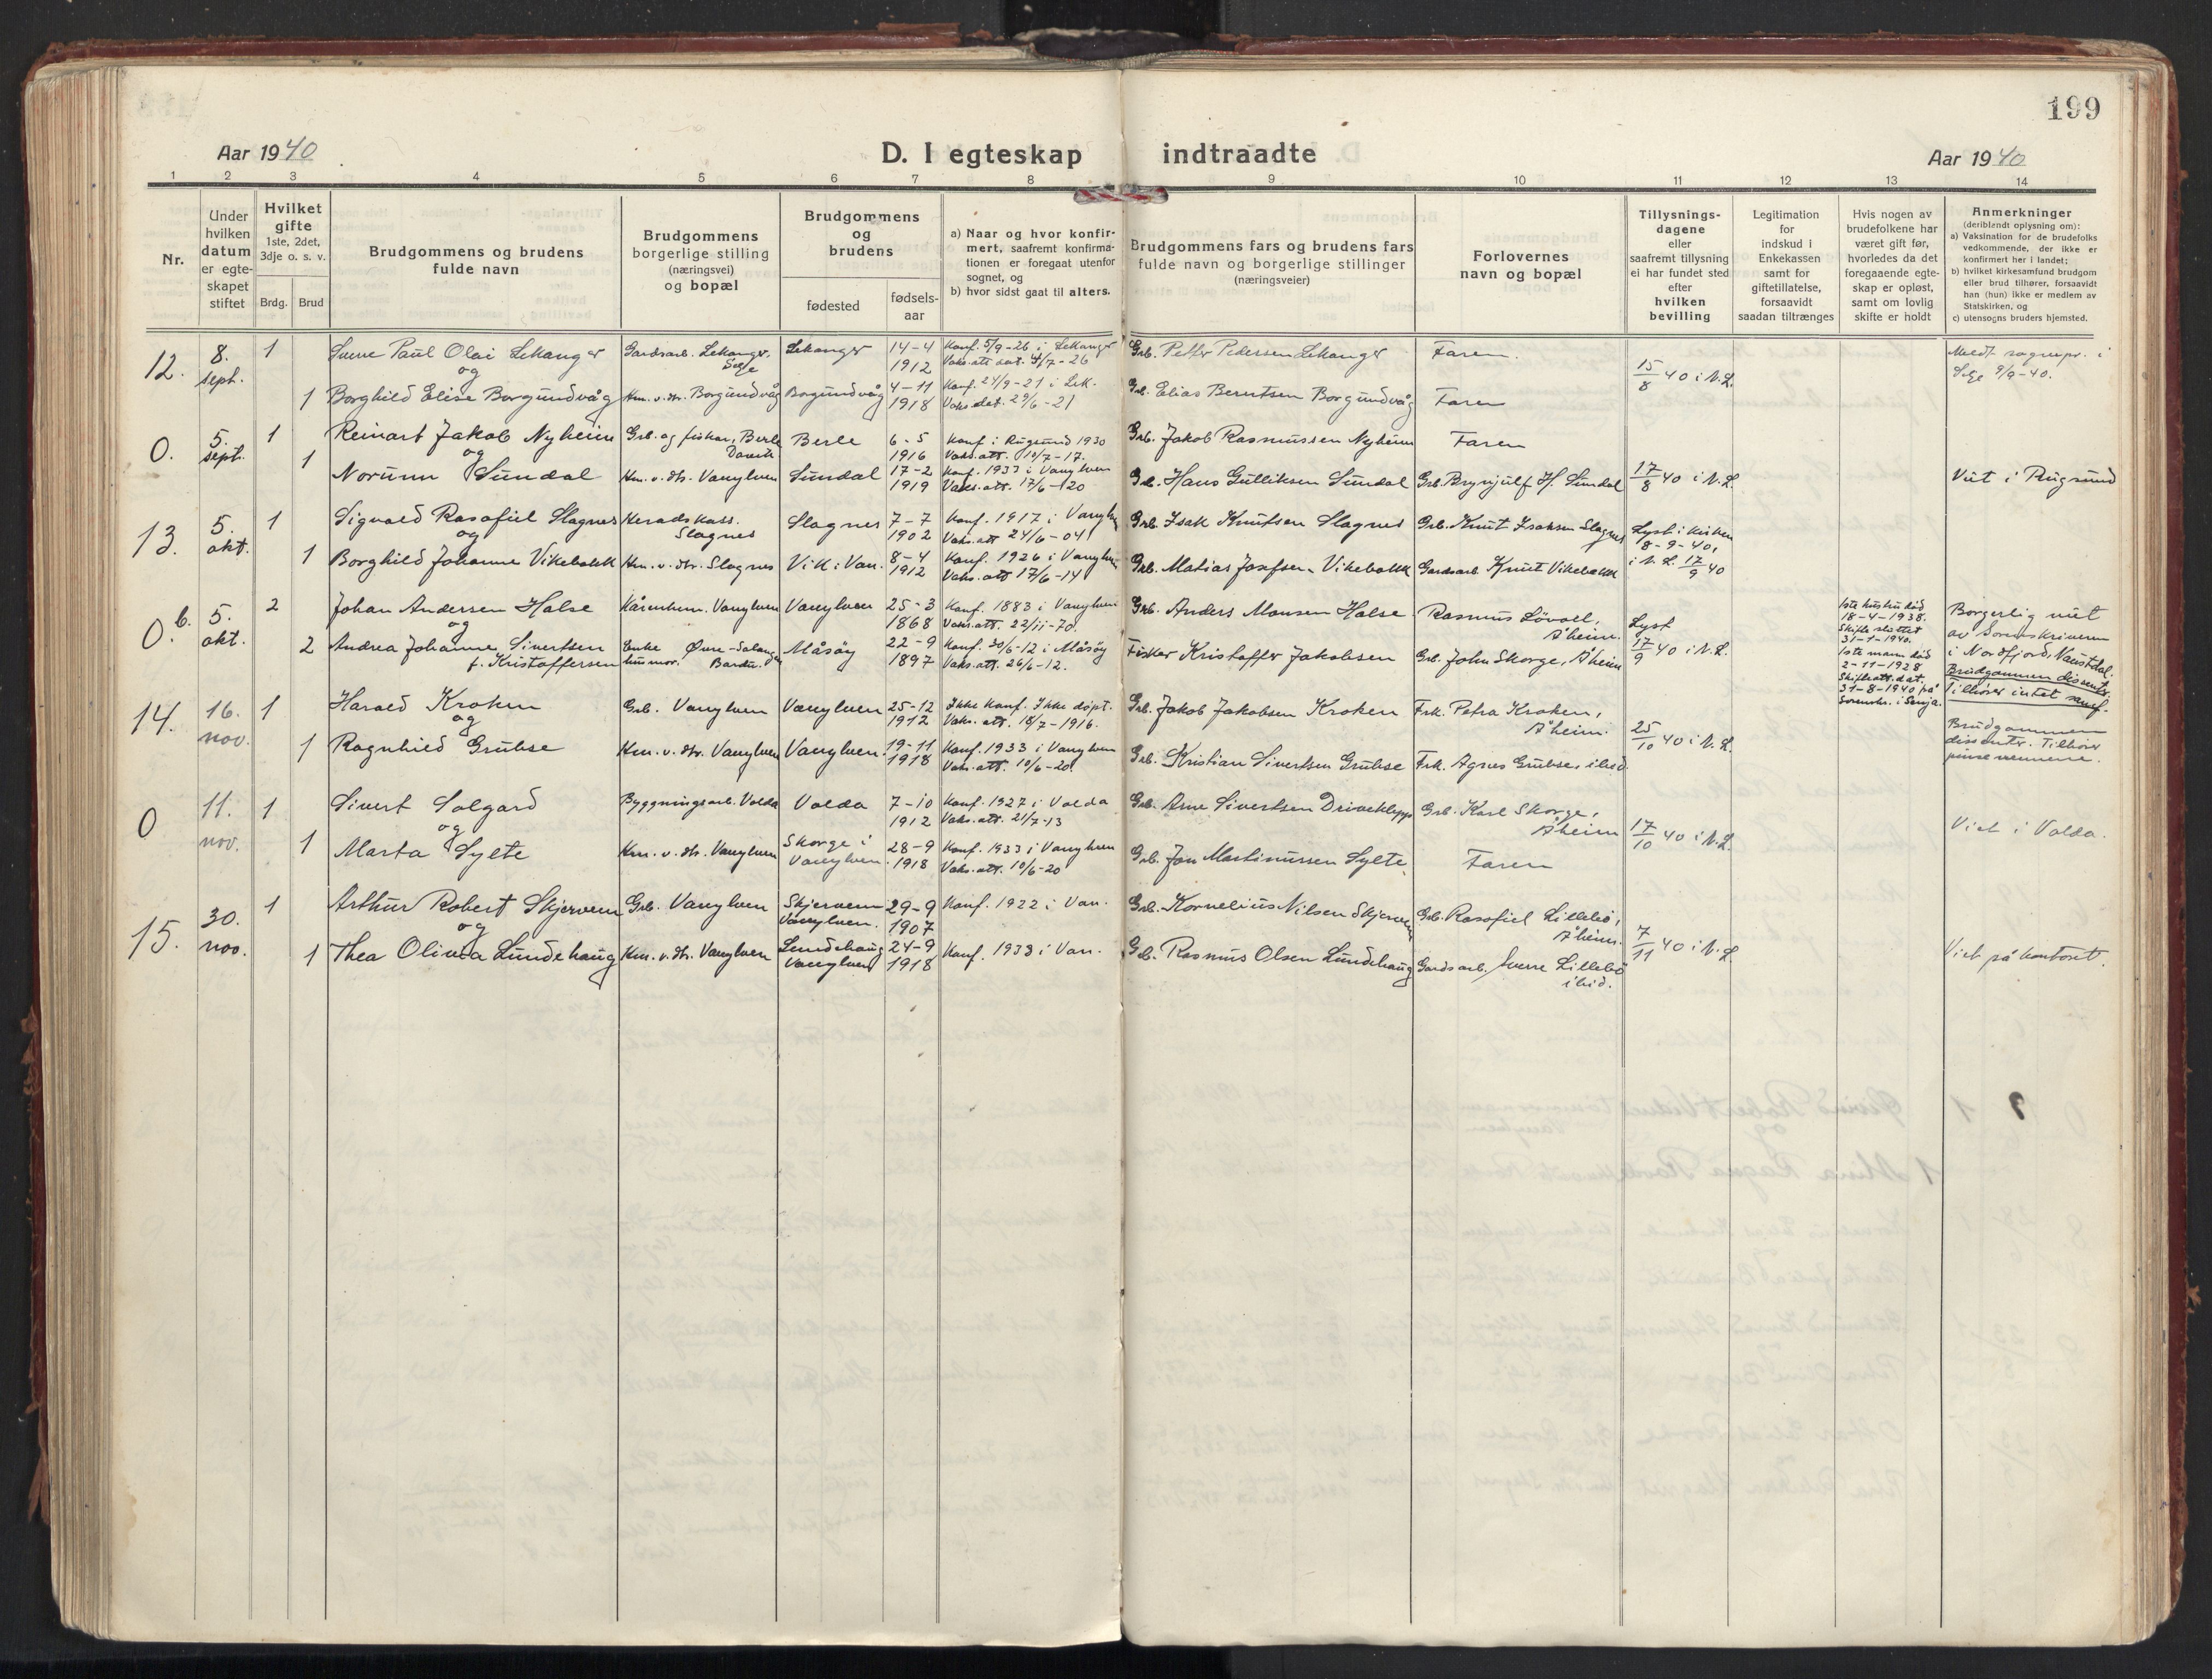 199
Aar 1940
D. I egteskap indtraadte
Aar 1940
1 2 3 4 5 6 7 8 9 10 11 12 13 14
Nr.
Under hvilken datum er egte-skapet stiftet
Hvilket gifte
1ste, 2det, 3dje o. s. v.
Brdg. Brud
Brudgommens og brudens fulde navn
Brudgommens borgerlige stilling (næringsvei) og bopæl
Brudgommens og brudens
fødested
fødsels-aar
a) Naar og hvor konfir-mert, saafremt konfirma-tionen er foregaat utenfor sognet, og
b) hvor sidst gaat til alters.
Brudgommens fars og brudens fars fulde navn og borgerlige stillinger (næringsveier)
Forlovernes navn og bopæl
Tillysnings-dagene eller saafremt tillysning ei har fundet sted efter hvilken bevilling
Legitimation for indskud i Enkekassen samt for giftetillatelse, forsaavidt saadan tiltrænges
Hvis nogen av brudefolkene har været gift før, hvorledes da det foregaaende egte-skap er opløst, samt om lovlig skifte er holdt
Anmerkninger (deriblendt oplysning om):
a) Vaksination for de brudefolks vedkommende, der ikke er konfirmert her i landet;
b) hvilket kirkesamfund brudgom eller brud tilhører, forsaavidt han (hun) ikke er medlem av Statskirken, og
c) utensogns bruders hjemsted.
12. 8. sept. 1 Sverre Paul Olai Lekanger Gardsarb. Lekanger, Selje Lekanger 14-4 1912 Konf. 5/9-26 i Lekanger Vaks.att dat. 4/7-26 Grb. Petter Pedersen Lekanger Faren. 15/8 40 i N.L. Meldt sogнepr. i Selje 9/9-40.
og
1 Borghild Elise Borgundvåg Hm. v. dtr. Borgundvåg Borgundvåg 4-11 1918 Grb. Elias Berntsen Borgundvåg Faren
0. 5. sept. 1 Reinart Jakob Nyheim Grb. og fisker, Berle Davik Berle 6-5 1916 Konf. i Rugsund 1930 Vaks.att. 10/7-17. Grb. Jakob Rasmussen Nyheim Faren
og
1 Norunn Sundal Hm. v. dtr. Vanylven Sundal 17-2 1919 Konf. 1933 i Vanylven Vaks.att. 17/6-120 Grb. Hans Gulliksen Sundal Grb. Brynjulf H. Sundal 17/8 40 i N.L. Viet i Rugsund
13. 5. okt. 1 Sigvald Rasofiel Slagnes Heradskass. Slagnes Slagnes 7-7 1902 Konf. 1917 i Vanylven Vaks.att 24/6-04 Grb. Isak Knutsen Slagnes Grb. Knut Isaksen Slagnes Lyst i kirken 8-9-40, i N.L. 17/9 40
og
1 Borghild Johanne Vikebakk Hm. v. dtr. Slagnes Vik i Van. 8-4 1912 Konf. 1926 i Vanylven Vaks.att 17/6-14 Grb. Matias Josefsen Vikebakk Gardsarb. Knut Vikebakk
0. b. 5. okt. 2 Johan Andersen Halse Kårenhem. Vanylven Vanylven 25-3 1868 Konf. 1883 i Vanylven Vaks.att. 22/11-70. Grb. Anders Monsen Halse Rasmus Lövoll, Åheim. Lyst 17/9 40 i N.L. 1ste hustru död 18-4-1938. Skifte sluttet 31-1-1940. Borgerlig viet av Sorenskriveren i Nordfjord, Naustdal. Brudgommen dissenter. Tilhører intet samf.
og
2 Andrea Johanne Sivertsen f. Kristoffersen Enke husmor. Övre-Salangen Bardu. Måsöy 22-9 1897 Konf. 30/6-12 i Måsöy Vaks.att. 26/6-12. Fisker Kristoffer Jakobsen Grb. John Skorge, Åheim 1ste mann död 2-11-1928 Skifteatt. dat. 31-8-1940 på Sorenskr. i Senja.
14. 16. nov. 1 Harald Kroken Grb. Vanylven Vanylven 25-12 1912 Ikke konf. Ikke döpt. Vaks. att. 18/7-1916. Grb. Jakob Jakobsen Kroken Frk. Petra Kroken, Åheim. 25/10 40 i N.L. Brudgommen dissenter. Tilhører pinsevennerne.
og
1 Ragnhild Grubse Hm. v. dtr. Vanylven Vanylven. 19-11 1918 Konf. 1933 i Vanylven Vaks.att. 10/6-20. Grb. Kristian Sivertsen Grubse Frk. Agnes Grubse, ibid.
0 11. nov. 1 Sivert Solgard Byggningsarb. Volda Volda 7-10 1912 Konf. 1927 i Volda Vaks.att. 21/7-13 Grb. Arne Sivertsen Driveklepp Grb. Karl Skorge, Åheim 17/10 40 i N.L. Viet i Volda.
og
1 Marta Sylte Hm. v. dtr. Vanylven Skorge i Vanylven 28-9 1918 Konf. 1933 i Vanylven Vaks.att. 10/6-20 Grb. Jon Martinussen Sylte. Faren
15. 30. nov. 1 Arthur Robert Skjervem Grb. Vanylven Skjervem Vanylven. 29-9 1907 Konf. 1922 i Van. Grb. Kornelius Nilsen Skjervem Grb. Rasofiel Lillebö, Åheim. 7/11 40 i N.L. Viet på kontoret.
og
1 Thea Oliva Lundehaug Hm. v. dtr. Vanylven Lundehaug Vanylven 24-9 1918 Konf. 1933 i Van. Grb. Rasmus Olsen Lundehaug Gardsarb. Sverre Lillebö ibid.